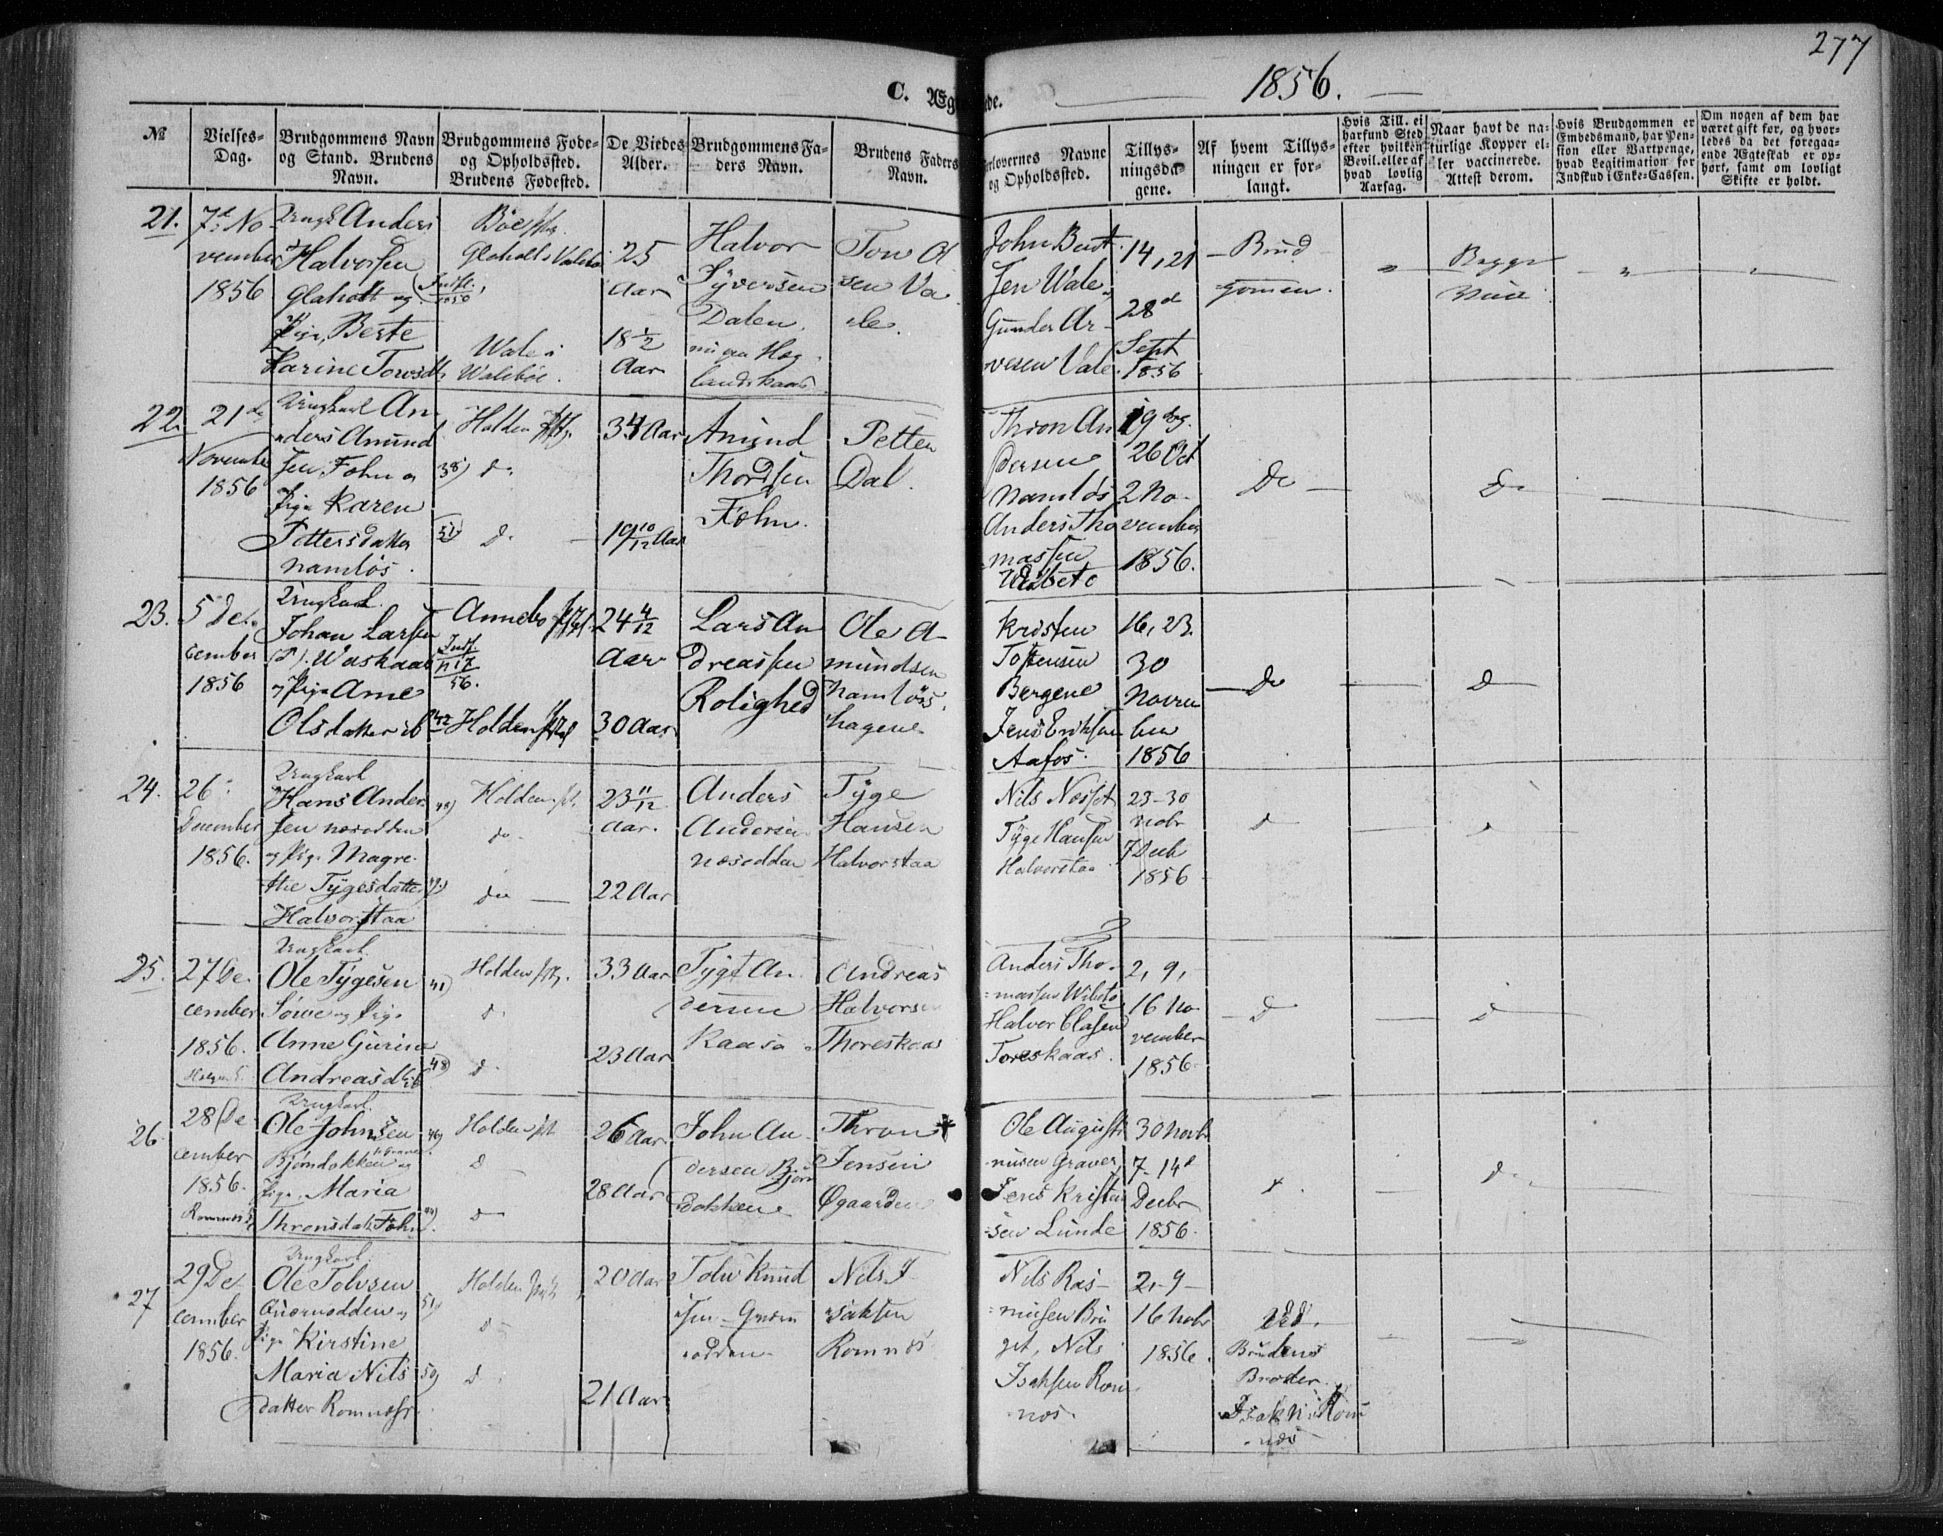 277
C. Æg de. 1856.
№
Vielses-Dag.
Brudgommens Navn og Stand. Brudens Navn.
Brudgommens Føde- og Opholdssted. Brudens Fødested.
De Viedes Alder.
Brudgommens Faders Navn.
Brudens Faders Navn.
Forlovernes Navne og Opholdssted.
Tillysningsdagene.
Af hvem Tillysningen er forlangt.
Hvis Till. ei harfund Sted efter hvilken Bevil. eller af hvad lovlig Aarsag.
Naar havt de naturlige Kopper eller vaccinerede. Attest derom.
Hvis Brudgommen er Embedsmand, har Pension eller Vartpenge, hvad Legitimation for Indskud i Enke-Cassen.
Om nogen af dem har været gift før, og hvorledes da det foregaaende Ægteskab er ophørt, samt om lovligt Skifte er holdt.
21.
7de November 1856
Ungk Anders
Halvorsen
Glaholt og
Pige Berte
Karine Towsdtr
Böe
Wale i
Waleböe.
25 Aar
18 1/2 Aar
Halvor
Syversen
Dalen
Tow Ol
sen Va
le.
John Bent
sen Wale
Gunder Ar
vesen Vale
14, 21
28d
Sept
1856
Brud
gomen.
Begge
22.
21de
November
1856
Ungkarl An
ders Amund
sen Fohn og
Pige Karen
Pettersdatter
Namlös.
Holden
38) do
51) do
34 Aar
19 10/12 Aar
Amund
Thordsen
Fohn.
Petter
Dal.
Thron An
dersen
Namlös
Anders Tho
massen
Wibeto
19
26 Oct
2 No
vember
1856.
Do
Do
23.
5 De
cember
1856
Ungkarl
Johan Larsen
og Pige Anne
Olsdatter ib
24 4/12
Aar
30 Aar
42 Holden
Lars An
dreassen
Rolighed
Ole A
mundsen
Namlös
hagene
Kristen
Tostensen
Bergene
Jens Eriksen
Aafos.
16, 23.
30
Novem
ber
1856
Do
D
24.
26
December
1856.
Ungkarl
Hans Ander
sen næsodden
og Pige Magre
the Tygesdatter
Halvorstaa
49) Holden
do
do
23 11/12
Aar.
22 Aar
Anders
Andersen
Næsodden
Tyge
Hansen
Halvorstaa
Nils Næset
Tyge Hansen
Halvorstaa
23-30
Nobr
7 Decb
1856
25.
27 De
cember
1856.
Ungkarl
Ole Tygesen
Söwe og Pige
Anne Gurine
Andreasd ib
41) Holden
D
48) D
33 Aar
23 Aar
Tyge An
dersen
Kaasa
Andreas
Halvorsen
Thoreskaas
Anders Tho
massen Wibeto
Halvor Olasen
Toreskaas.
2, 9,
16 No
vember
1856.
D
D
26.
28 De
cember
1856.
Romnæs K
Ungkarl.
Ole Johnsen
Bjöndokken og
Pige Maria
Thronsdatt Fohn
Holden
D
D
26 Aar
28 Aar
John An
dersen Björn
dokken
Thron
Jensen
Øgaarden
Ole Augusti
nusen Graver
Jens Kristen
sen Lunde
30 Novbr
7-14d
Decbr
1856.
27
29 De
cember
1856.
Ungkarl
Ole Tolvsen
Quernodden og
Pige Kirstine
Maria Nils
datter Romnæs
51) Holden
50) D
20 Aar
21 Aar
Tolv Knud
sen
odden
Nils I
saksen
Romnæs
Nils Ras
mussen Brü
get, Nils
Isaksen Rom
næs.
2,-9
16 Nobr
1856.
Ved
Brudens
Broder
Isak N. Rom
næs